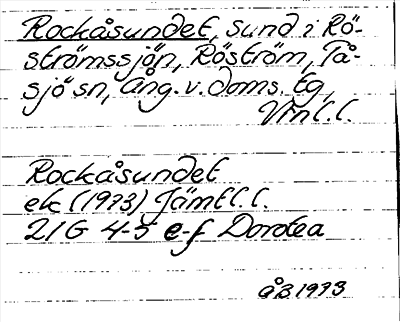 Rockåsundet, sund i Rö-
strömssjön, Röström, Tå-
sjö sn, Ång. v. doms. tg,
Vnl. l.
Rockåsundet
ek (1973) Jämtl. l.
21G 4-5 e-f Dorotea
åB 1973